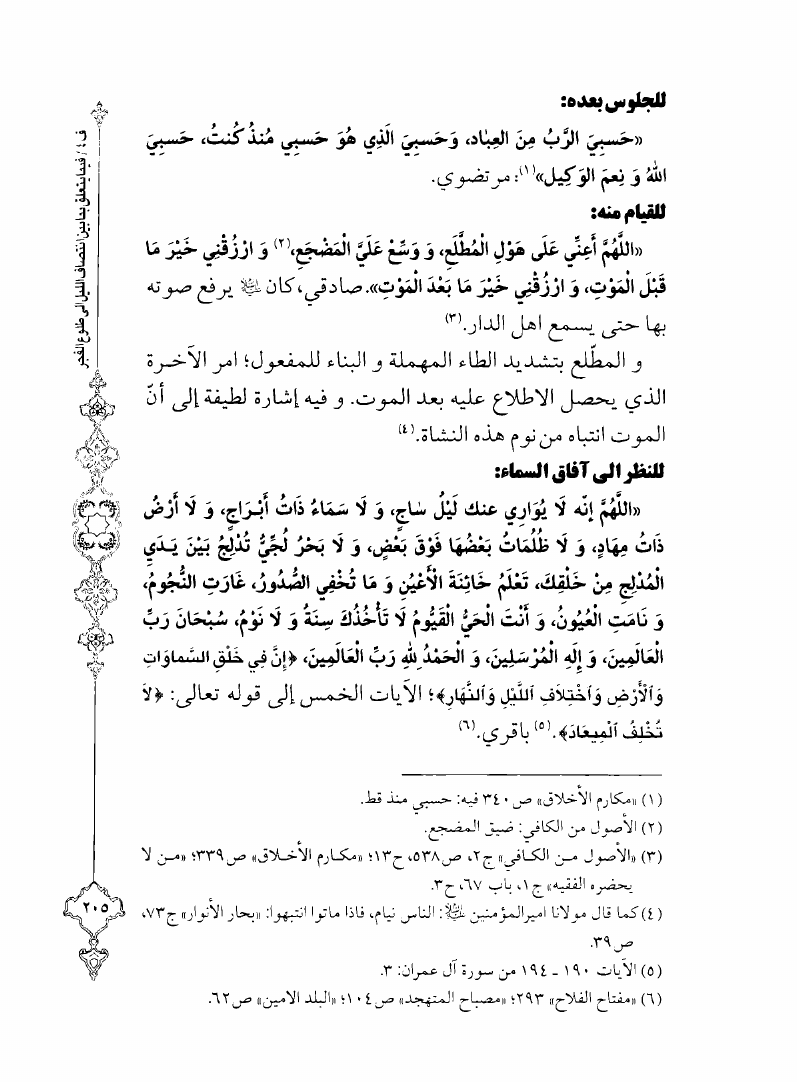 للجلوس بعده:
«حَسبِيَ الرَّبُّ مِنَ العِبٰادِ، وَحَسبِيَ الَّذِي هُوَ حَسبِي مُنذُ كُنتُ، حَسبِيَ
اللهُ وَ نِعمَ الوَكِيل»(١): مرتضوي.
للقيام منه:
«اللَّهُمَّ أَعِنِّي عَلَى هَوْلِ الْمُطَّلَعِ، وَ وَسِّعْ عَلَيَّ الْمَضْجَعِ،(٢) وَ ارْزُقْنِي خَيْرَ مَا
قَبْلَ الْمَوْتِ، وَ ارْزُقْنِي خَيْرَ مَا بَعْدَ الْمَوْتِ». صادقي، كان ﷷ يرفع صوته
بها حتى يسمع اهل الدار.(٣)
و المطّلع بتشديد الطاء المهملة و البناء للمفعول؛ امر الآخرة
الذي يحصل الاطلاع عليه بعد الموت. و فيه إشارة لطيفة إلى أنّ
الموت انتباه من نوم هذه النشاة.(٤)
للنظر الى آفاق السماء:
«اللَّهُمَّ إنّه لَا يُوَارِي عنك لَيْلُ سٰاجٍ، وَ لَا سَمَاءُ ذَاتُ أَبْرَاجٍ، وَ لَا أَرْضُ
ذَاتُ مِهَادٍ، وَ لَا ظُلُمَاتُ بَعْضُهَا فَوْقَ بَعْضٍ، وَ لَا بَحْرُ لُجِّيُّ تُدْلِجُ بَيْنَ يَدَيِ
الْمُدْلِجِ مِنْ خَلْقِكَ، تَعْلَمُ خَائِنَةَ الْأَعْيُنِ وَ مَا تُخْفِي الصُّدُورُ، غَارَتِ النُّجُومُ،
وَ نَامَتِ الْعُيُونُ، وَ أَنْتَ الْحَيُّ الْقَيُّومُ لَا تَأْخُذُكَ سِنَةُ وَ لَا نَوْمُ، سُبْحَانَ رَبِّ
الْعَالَمِينَ، وَ إِلَهِ الْمُرْسَلِينَ، وَ الْحَمْدُ لِلهِ رَبِّ الْعَالَمِينَ، ﴿إِنَّ فِي خَلْقِ السَّماوَاتِ
وَالْأَرْضِ وَاخْتِلَافِ اللَّيْلِ وَالنَّهَارِ﴾؛ الآيات الخمس إلى قوله تعالى: ﴿لَا
تُخْلِفُ الْمِيعَادَ﴾.(٥) باقري.(٦)
(١) «مكارم الأخلاق» ص ٣٤٠ فيه: حسبي منذ قط.
(٢) الأصول من الكافي: ضيق المضجع.
(٣) «الأصول من الكافي» ج٢، ص٥٣٨، ح١٣؛ «مكارم الأخلاق» ص٣٣٩؛ «من لا
يحضره الفقيه» ج١، باب ٦٧، ح٣.
(٤) كما قال مولانا اميرالمؤمنين ﷷ: الناس نيام، فاذا ماتوا انتبهوا: «بحار الأنوار» ج٧٣،
ص٣٩.
(٥) الآيات ١٩٠ ـ ١٩٤ من سورة آل عمران: ٣.
(٦) «مفتاح الفلاح» ٢٩٣؛ «مصباح المتهجد» ص١٠٤؛ «البلد الامين» ص٦٢.
ف ٤ / فيما يتعلق بما بين انتصاف الليل الى طلوع الفجر
٢٠٥